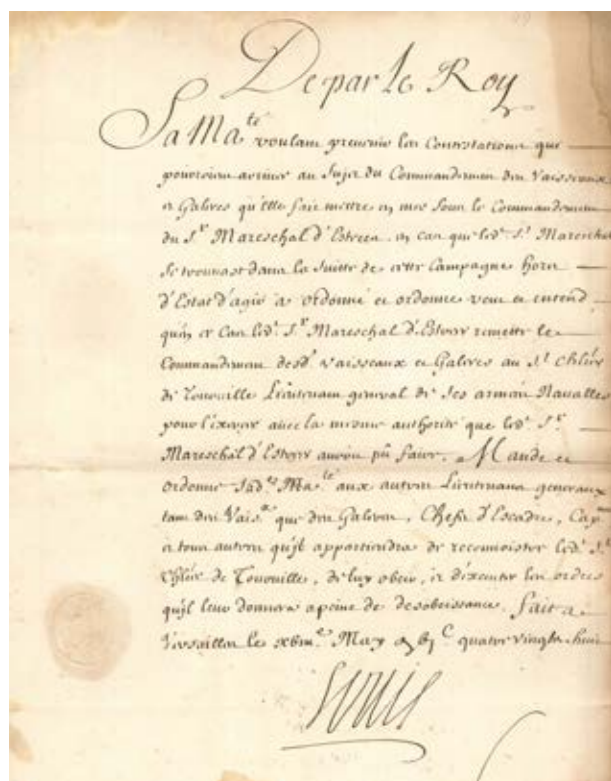 De par le Roy
Sa Ma.té voulant prevenir les Contestations que
pouroient arriver au Sujet du Commandement des Vaisseaux
et Galeres qu'elle fait mettre en mer sous le Commandement
du S.r Mareschal d'Estrées, en cas que led. S.r Mareschal
se trouvast dans la Suitte de cette Campagne hors
d'Estat d'agir a ordonné et ordonne veut et entend,
qu'en ce Cas led. S.r Mareschal d'Estrées remette le
Commandement desd. vaisseaux et Galeres au S.r Chlier
de Tourville Lieutenant general de ses armées Navalles
pour l'exercer avec la mesme authorité que led. S.r
Mareschal d'Estrées auroit pû faire. Mande et
ordonne Sad.te Ma.té aux autres Lieutenans generaux
tant des Vais.x que des Galeres, Chefs d'Escadre, Cap.nes
et tous autres qu'il appartiendra de reconnoistre led. S.r
Chlier de Tourville, de luy obeir, et d'executer les ordres
qu'il leur donnera a peine de desobeissance. Fait a
Versailles le May quatre vingts huit
Louis